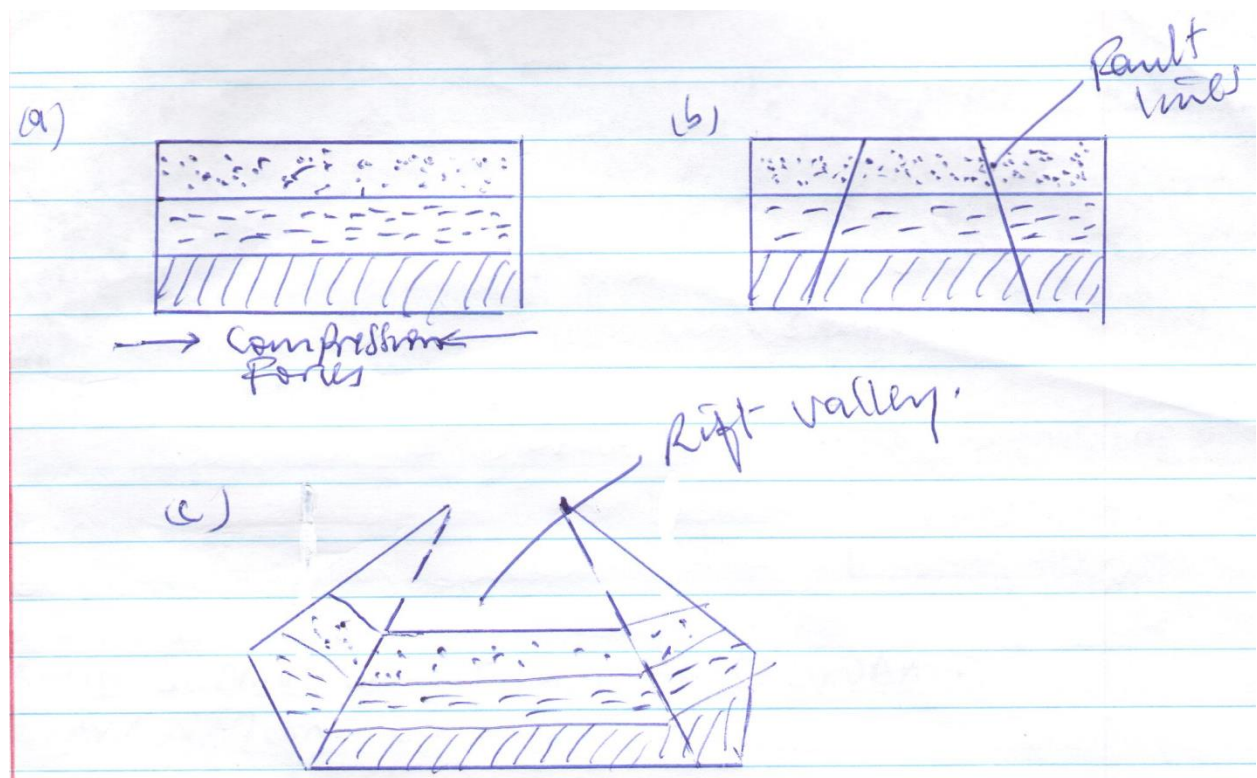 (a)
(b)
Fault
lines
Compression
Forces
Rift valley.
(c)